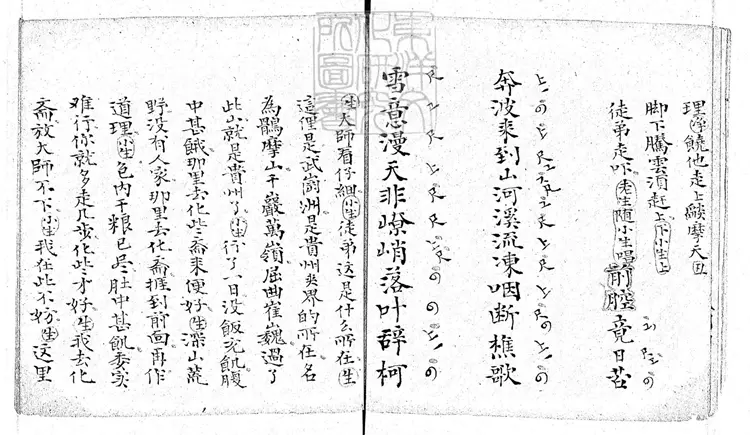 理淨饒他走上燄摩天丑
脚下騰雲須赶上下小生上
徒弟走吓老生隨小生唱前腔竟日苦
奔波来到山河溪流凍咽断樵歌
雪意漫天非嶛峭落叶辞柯
生大师看仔細小生徒弟这是什么所在生
這里是武崗洲是貴州夾界的所在名
為鶻摩山千巖萬嶺屈曲崔巍過了
此山就是貴州了小生行了一日没飯充飢腹
中甚餓那里去化些斋来便好生深山荒
野没有人家那里去化斋捱到前面再作
道理小生包内干粮已尽肚中甚飢委实
难行你就多走几步化些才好生我去化
斋放大师不下小生我在此不妨生这里